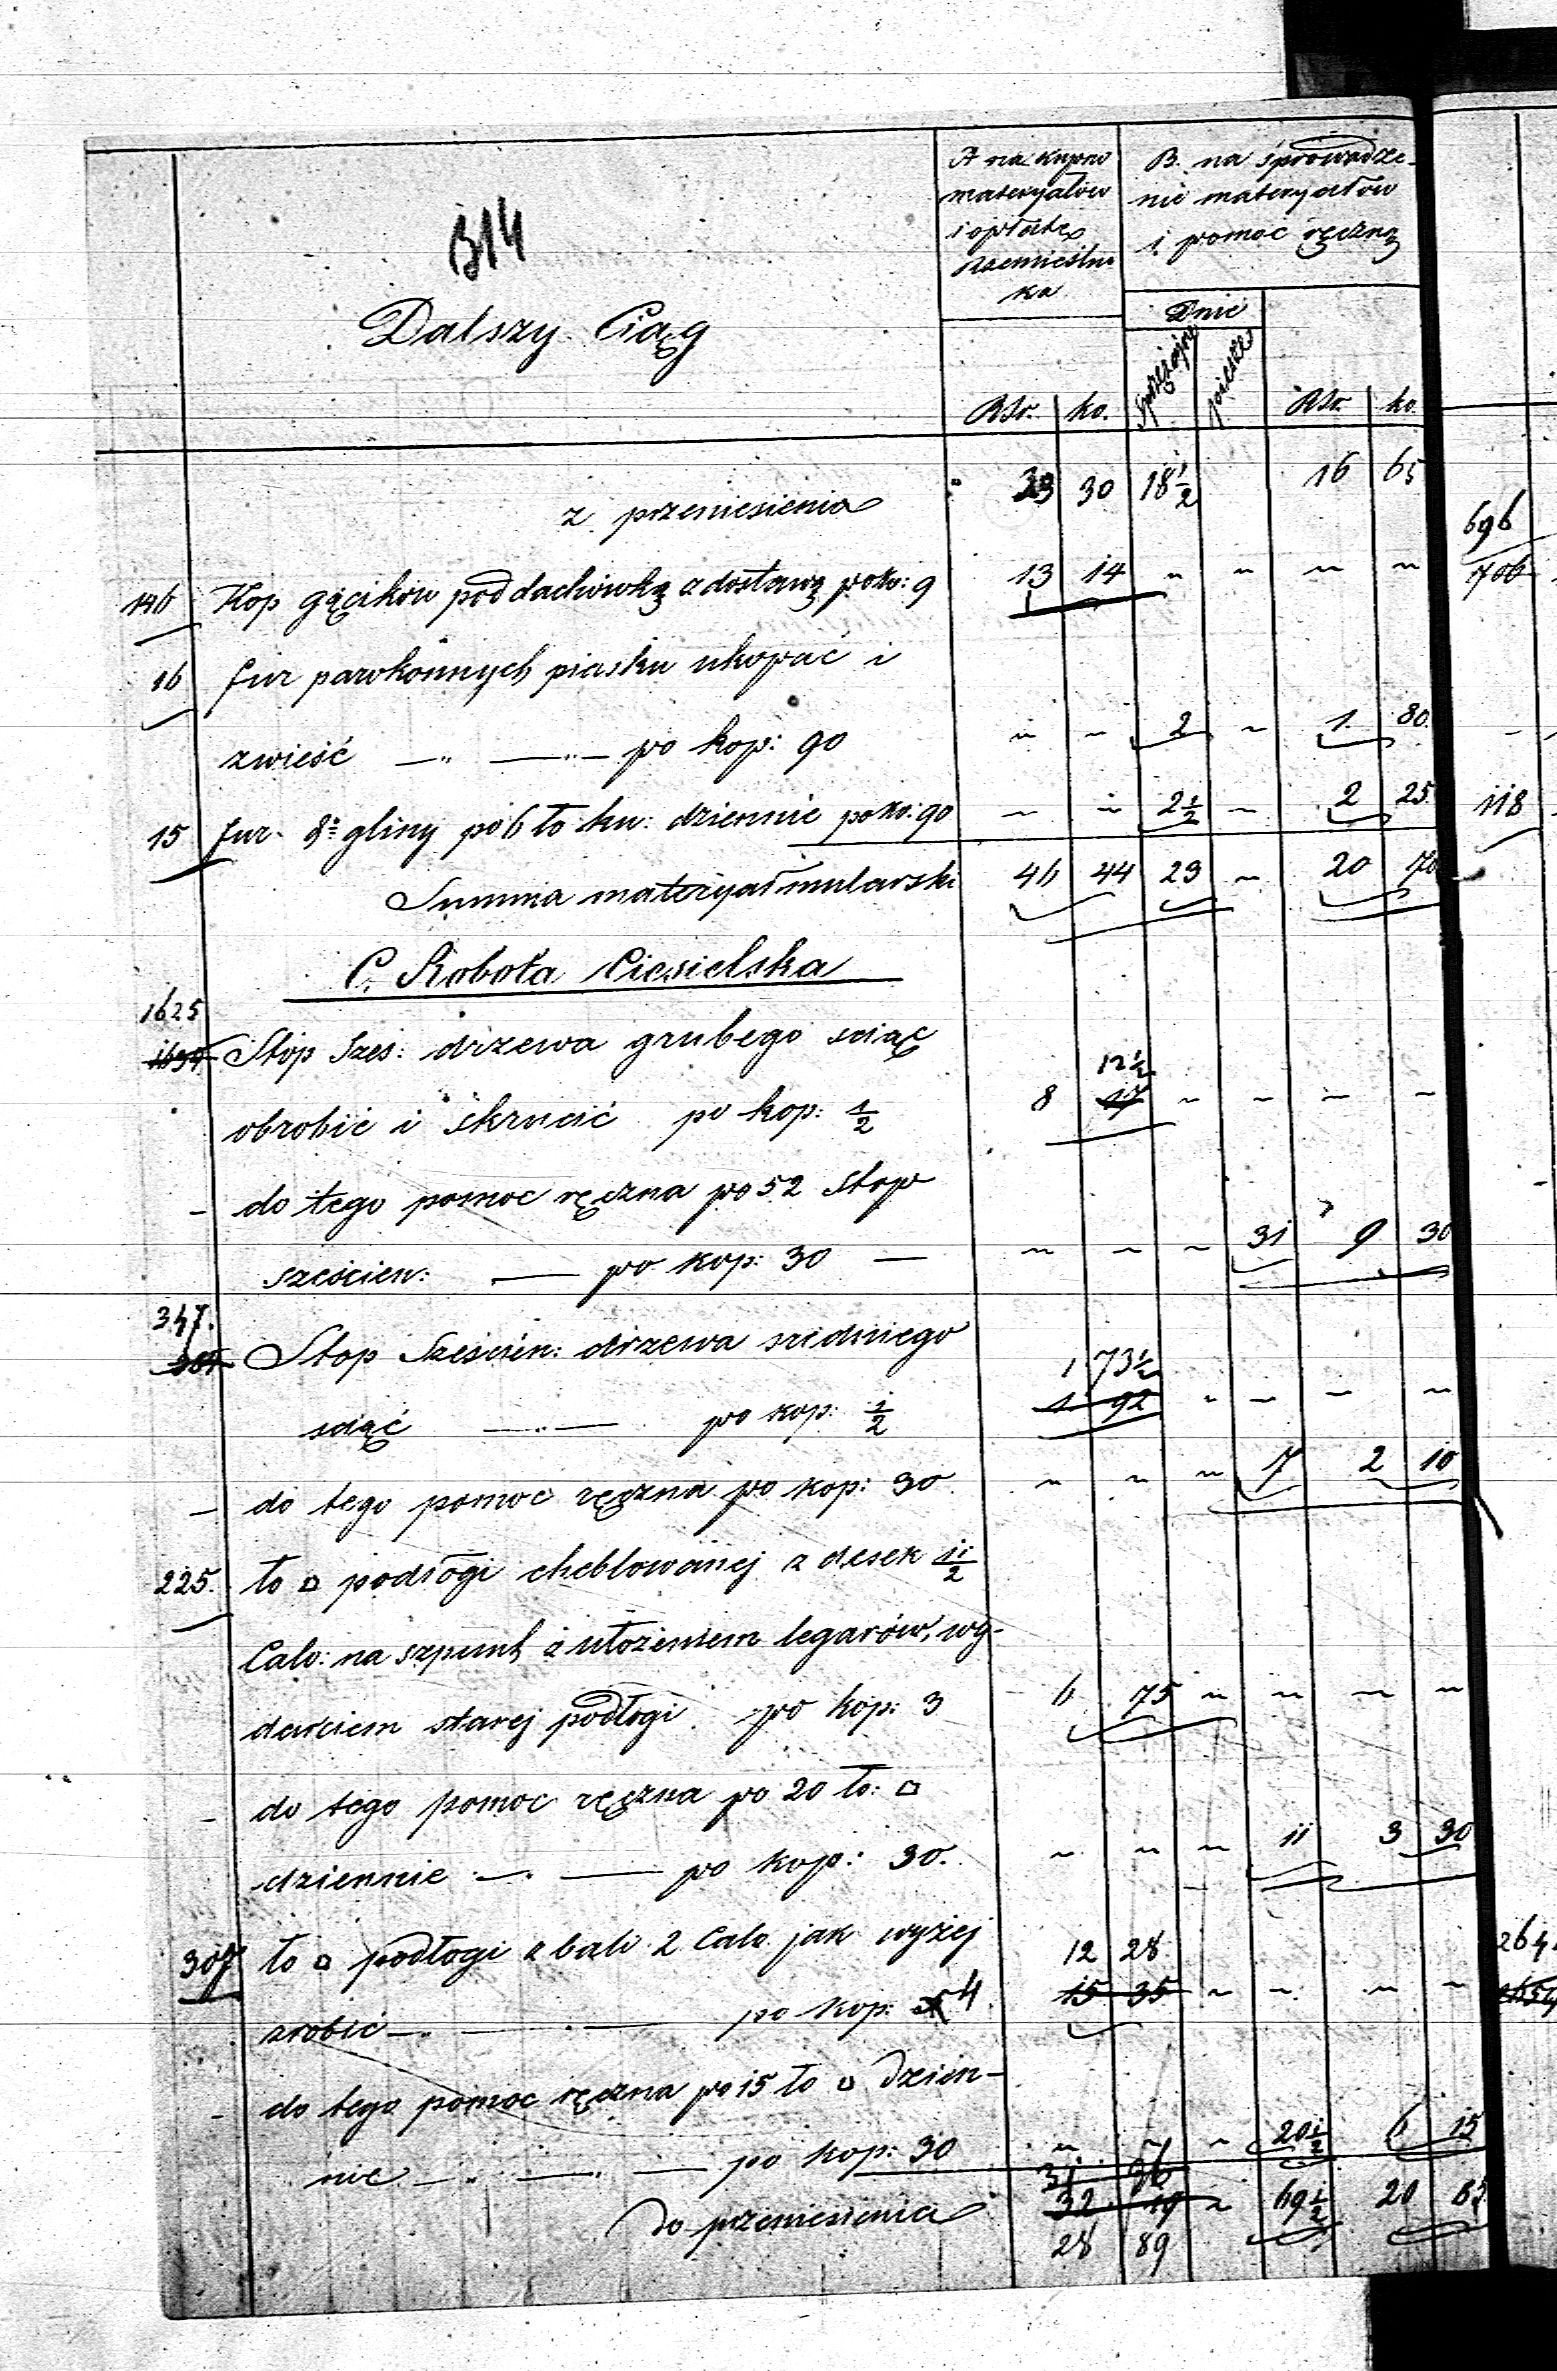 A na kupno
materyałów
i opłatę
rzemieślni
ka
B. na sprowadze-
nie materyałów
i pomoc ręczną
B14
Dalszy Ciąg
Dnie
sprzężajne piesze
Rsr. ko. Rsr. ko.
z przeniesienia " 33 30 18 1/2 16 65
696
146 Kop gącików pod dachówkę z dostawą po ko: 9 13 14 " " " "
706
16 fur parokonnych piasku ukopać i
zwieść —"— —"— po kop: 90 " " 2 " 1. 80.
15 fur dto gliny po 6 to ku: dziennie po ko: 90 " " 2 1/2 " 2 25.
118
Summa materyał mularski 46 44 23 " 20 70
C. Robota Ciesielska
1625
1634 Stop Sześ: drzewa grubego sciąć
12 1/2
obrobić i skrucić po kop: 1/2 8 17 " " " "
- do tego pomoc ręczna po 52 Stop
sześcien: — po kop: 30 — " " " 31 9 30
347.
384 Stop Sześcien: drzewa sredniego
1 73 1/2
sciąć —"— po kop: 1/2 1 92 " " " "
- do tego pomoc ręczna po kop: 30 " " " 7 2 10
225. to □ podłogi cheblowanej z desek 1 1/2
Calo: na szpunt z ułożeniem legarów, wy-
darciem starej podłogi po kop: 3 6 75 " " " "
- do tego pomoc ręczna po 20 to: □
dziennie —"— po kop: 30. " " " 11 3 30
307 to □ podłogi z bali 2 Calo jak wyżej 12 28
264
zrobić —"— po kop: 4 15 35 " " " "
- do tego pomoc ręczna po 15 to □ dzien-
nie —"— —"— po kop: 30 " " " 20 1/2 6 15
31 36
do przeniesienia 32 19 " 69 1/2 20 85
28 89